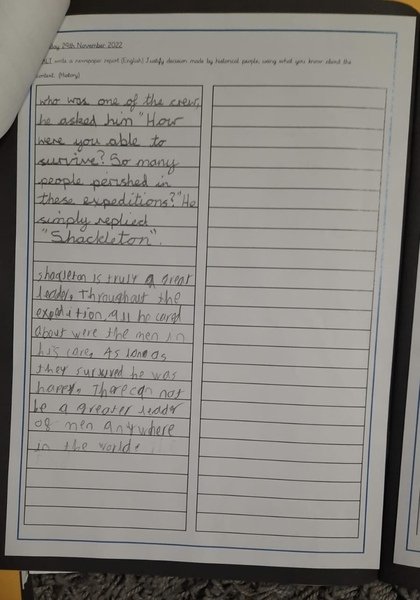 day 29th November 2022
write a newspaper report (English) Justify decision made by historical people, using what you know about the
context. (History)
who was one of the crew,
he asked him "How
were you able to
survive? So many
people perished in
these expeditions?" He
simply replied
"Shackleton".
shagleton is truly a great
leader. Throughout the
expedition, all he cared
about were the men in
his care. As long as
they survived he was
happy. There can not
be a greater leader
of men anywhere
in the world.